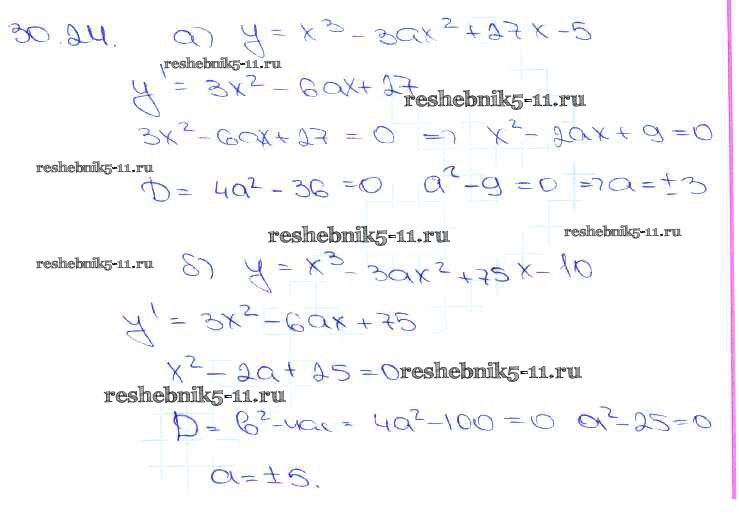 30.24. а) y = x³ - 3ax² + 27x - 5
reshebnik5-11.ru
y' = 3x² - 6ax + 27
reshebnik5-11.ru
3x² - 6ax + 27 = 0 => x² - 2ax + 9 = 0
reshebnik5-11.ru
D = 4a² - 36 = 0 a² - 9 = 0 => a = ±3
reshebnik5-11.ru reshebnik5-11.ru
reshebnik5-11.ru б) y = x³ - 3ax² + 75x - 10
y' = 3x² - 6ax + 75
x² - 2a + 25 = 0 reshebnik5-11.ru
reshebnik5-11.ru
D = b² - 4ac = 4a² - 100 = 0 a² - 25 = 0
a = ±5.